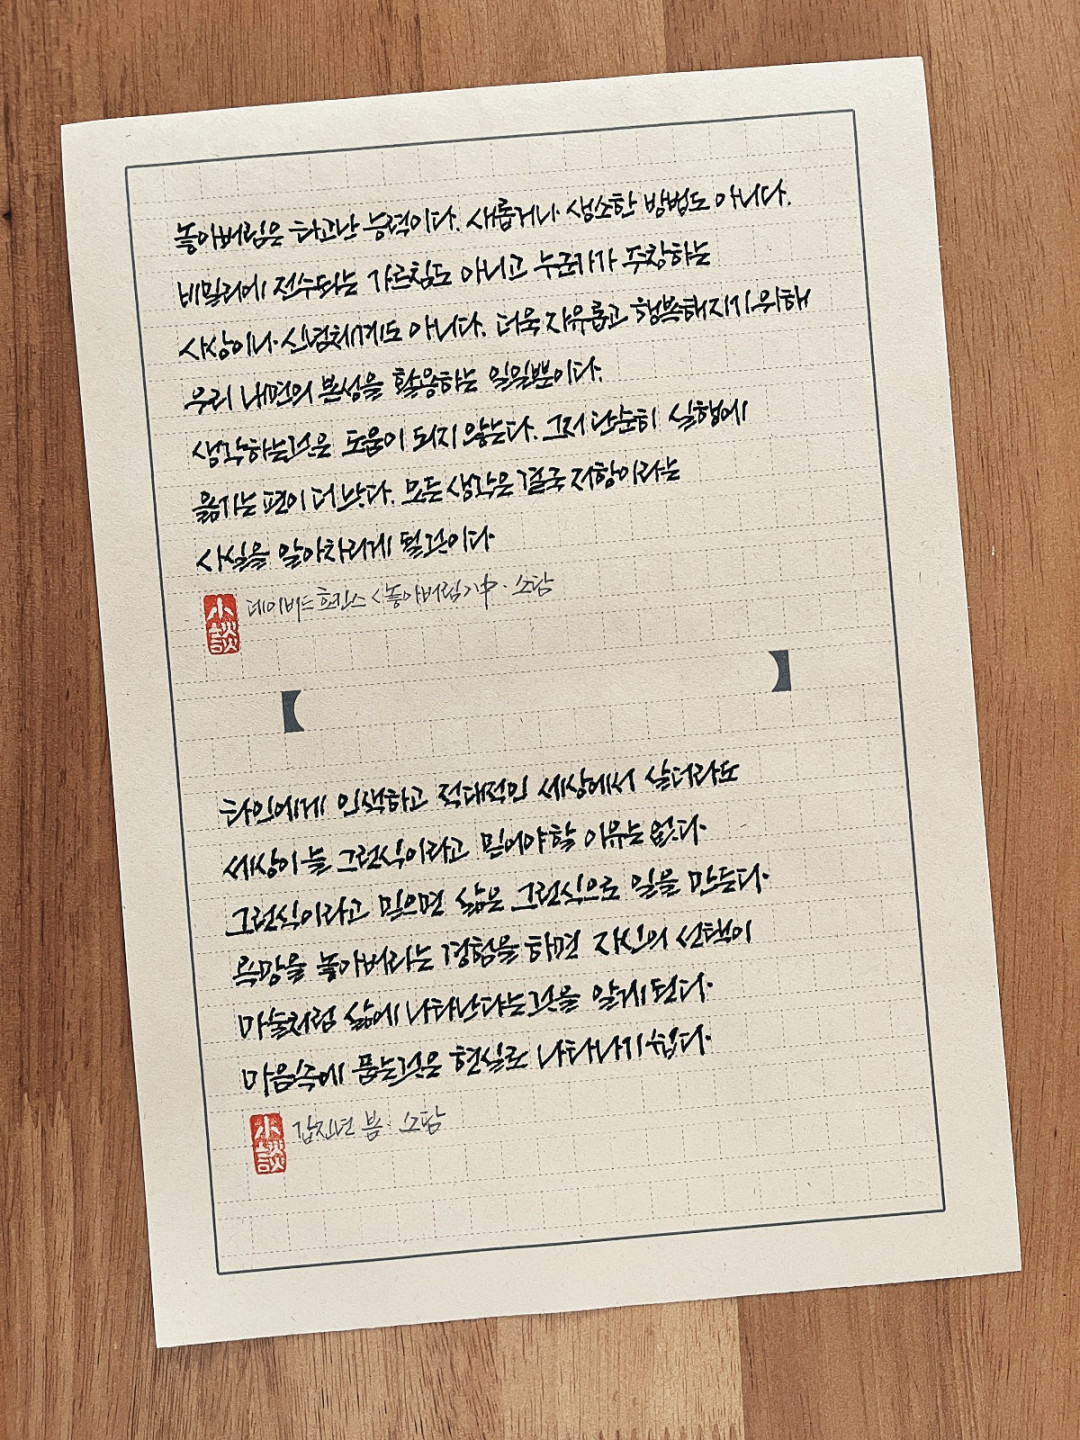 놓아버림은 타고난 능력이다. 새롭거나 생소한 방법도 아니다.
비밀리에 전수되는 가르침도 아니고 누군가가 주창하는
사상이나 신념체계도 아니다. 더욱 자유롭고 행복해지기 위해
우리 내면의 본성을 활용하는 일일뿐이다.
생각하는것은 도움이 되지 않는다. 그저 단순히 실행에
옮기는 편이 더 낫다. 모든 생각은 결국 저항이라는
사실을 알아차리게 될것이다.
小談 데이비드 호킨스 <놓아버림>中. 소담
타인에게 인색하고 적대적인 세상에서 살더라도
세상이 늘 그런식이라고 믿어야할 이유는 없다.
그런식이라고 믿으면 삶은 그런식으로 일을 만든다.
욕망을 놓아버리는 경험을 하면 자신의 선택이
마술처럼 삶에 나타난다는것을 알게된다.
마음속에 품는것은 현실로 나타나기 쉽다.
小談 갑진년 봄. 소담